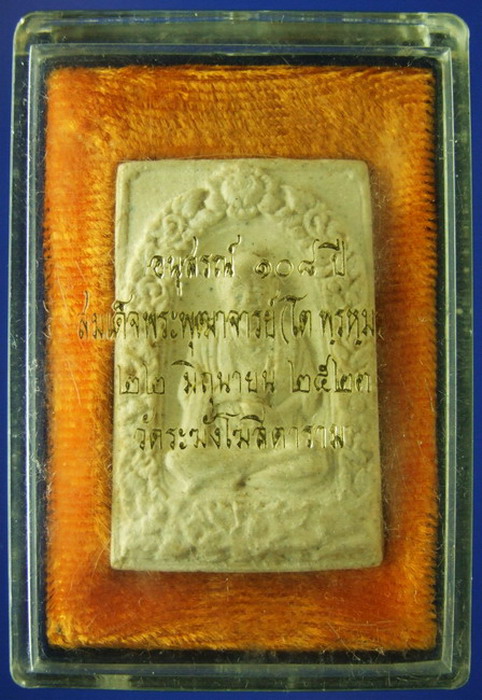 อนุสรณ์ ๑๐๘ ปี
สมเด็จพระพุฒาจารย์(โต พฺรหฺม
๒๒ มิถุนายน ๒๕๒๓
วัดระฆังโฆสิตาราม